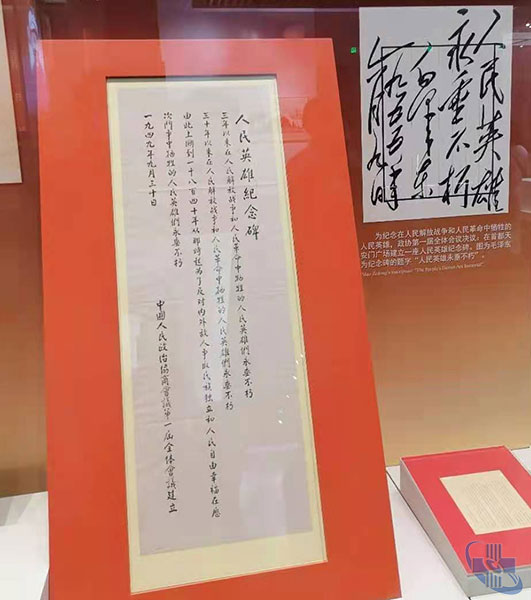 人民英雄紀念碑
三年以来在人民解放战争和人民革命中牺牲的人民英雄們永垂不朽
三十年以来在人民解放战争和人民革命中牺牲的人民英雄們永垂不朽
由此上溯到一千八百四十年从那時起为了反对内外敌人争取民族独立和人民自由幸福在歷
次鬥争中牺牲的人民英雄們永垂不朽
一九四九年九月三十日
中國人民政治協商會議第一届全体會議建立
人民英雄
永垂不朽
毛泽东
为纪念在人民解放战争和人民革命中牺牲的
人民英雄，政协第一届全体会议决议，在首都天
安门广场建立一座人民英雄纪念碑。图为毛泽东
为纪念碑的题字“人民英雄永垂不朽”。
Mao Zedong's inscription: "The People's Heroes Are Immortal".